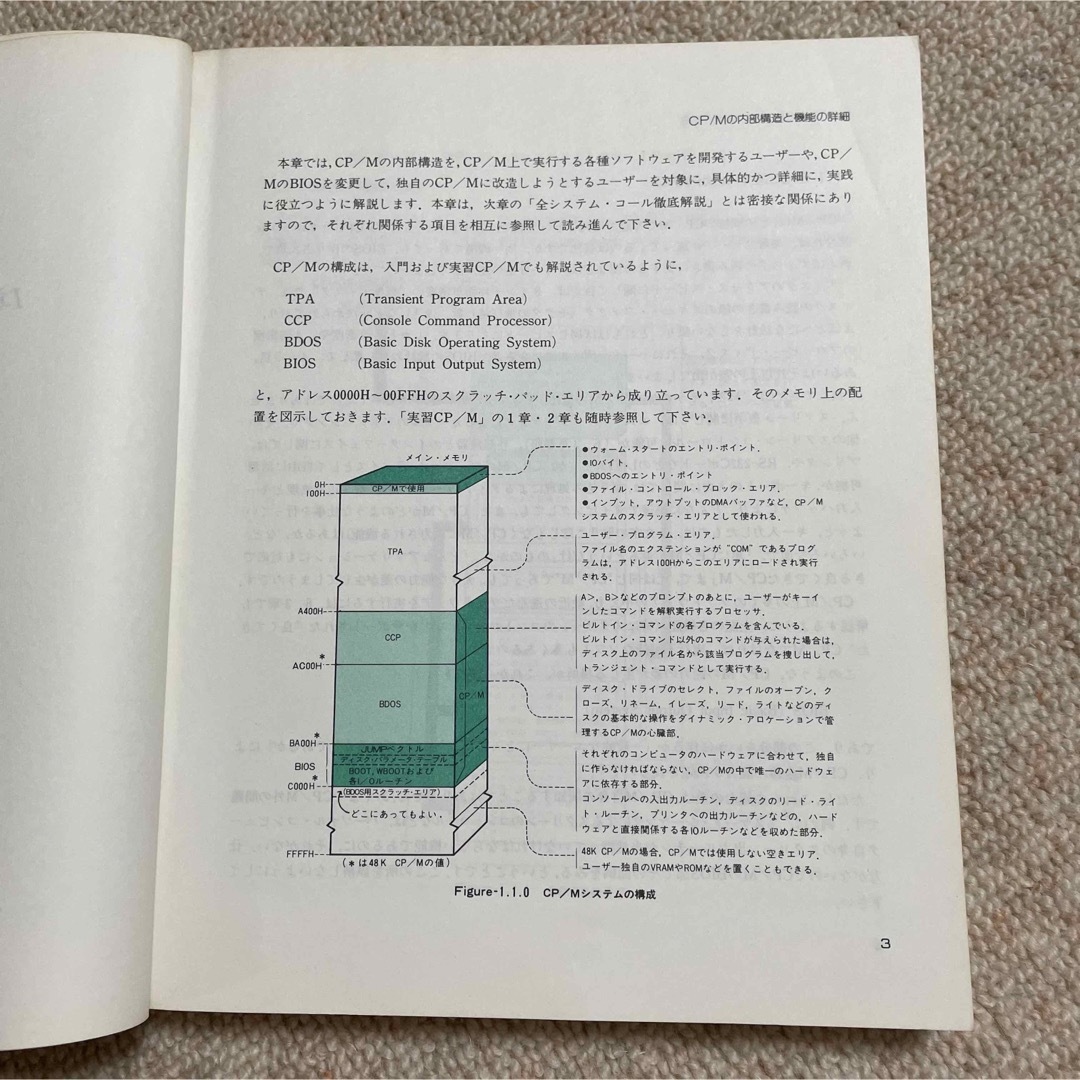 CP/Mの内部構造と機能の詳細
本章では,CP/Mの内部構造を,CP/M上で実行する各種ソフトウェアを開発するユーザーや,CP/
MのBIOSを変更して,独自のCP/Mに改造しようとするユーザーを対象に,具体的かつ詳細に,実践
に役立つように解説します.本章は,次章の「全システム・コール徹底解説」とは密接な関係にあり
ますので,それぞれ関係する項目を相互に参照して読み進んで下さい.
CP/Mの構成は,入門および実習CP/Mでも解説されているように,
TPA (Transient Program Area)
CCP (Console Command Processor)
BDOS (Basic Disk Operating System)
BIOS (Basic Input Output System)
と,アドレス0000H~00FFHのスクラッチ・パッド・エリアから成り立っています.そのメモリ上の配
置を図示しておきます.「実習CP/M」の1章・2章も随時参照して下さい.
メイン・メモリ
0H
100H
CP/Mで使用
TPA
A400H
CCP
AC00H*
BDOS
CP/M
BA00H*
JUMPベクトル
ディスク・パラメータ・テーブル
BIOS
BOOT,WBOOTおよび
各I/Oルーチン
C000H*
(BDOS用スクラッチ・エリア)
どこにあってもよい.
FFFFH
(*は48K CP/Mの値)
●ウォーム・スタートのエントリ・ポイント.
●IOバイト.
●BDOSへのエントリ・ポイント
●ファイル・コントロール・ブロック・エリア.
●インプット,アウトプットのDMAバッファなど,CP/M
システムのスクラッチ・エリアとして使われる.
ユーザー・プログラム・エリア.
ファイル名のエクステンションが"COM"であるプログ
ラムは,アドレス100Hからこのエリアにロードされ実行
される.
A>,B>などのプロンプトのあとに,ユーザーがキーイ
ンしたコマンドを解釈実行するプロセッサ.
ビルトイン・コマンドの各プログラムを含んでいる.
ビルトイン・コマンド以外のコマンドが与えられた場合は,
ディスク上のファイル名から該当プログラムを捜し出して,
トランジェント・コマンドとして実行する.
ディスク・ドライブのセレクト,ファイルのオープン,ク
ローズ,リネーム,イレーズ,リード,ライトなどのディ
スクの基本的な操作をダイナミック・アロケーションで管
理するCP/Mの心臓部.
それぞれのコンピュータのハードウェアに合わせて,独自
に作らなければならない,CP/Mの中で唯一のハードウェ
アに依存する部分.
コンソールへの入出力ルーチン,ディスクのリード・ライ
ト・ルーチン,プリンタへの出力ルーチンなどの,ハード
ウェアと直接関係する各IOルーチンなどを収めた部分.
48K CP/Mの場合,CP/Mでは使用しない空きエリア.
ユーザー独自のVRAMやROMなどを置くこともできる.
Figure-1.1.0 CP/Mシステムの構成
3